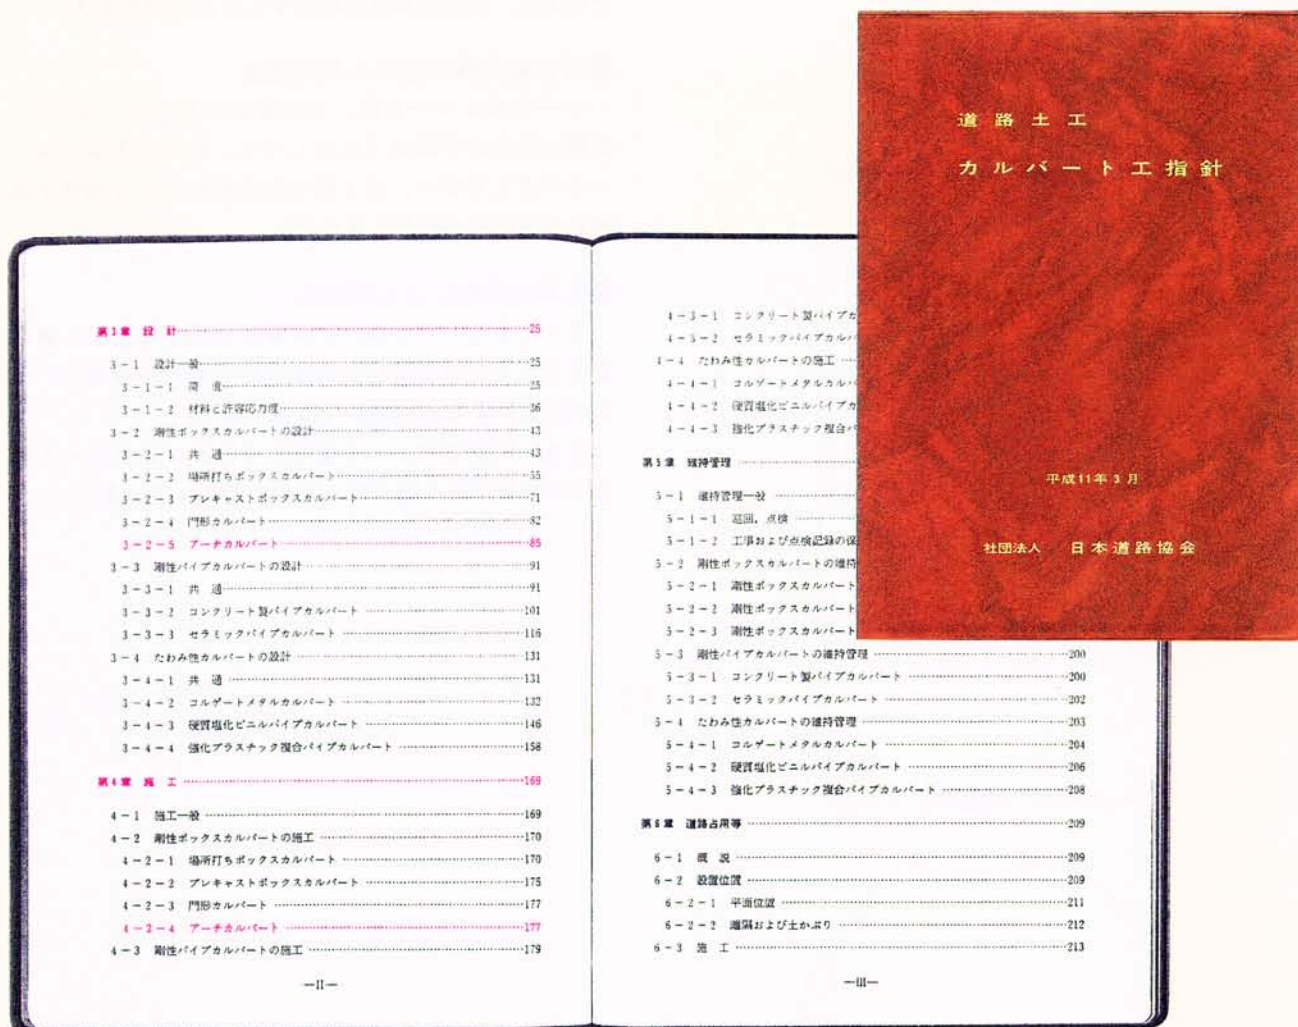 道路土工
カルバート工指針
平成11年3月
社団法人 日本道路協会
第3章 設計 25
3-1 設計一般 25
3-1-1 荷重 25
3-1-2 材料と許容応力度 36
3-2 剛性ボックスカルバートの設計 43
3-2-1 共通 43
3-2-2 場所打ちボックスカルバート 55
3-2-3 プレキャストボックスカルバート 71
3-2-4 門形カルバート 82
3-2-5 アーチカルバート 85
3-3 剛性パイプカルバートの設計 91
3-3-1 共通 91
3-3-2 コンクリート製パイプカルバート 101
3-3-3 セラミックパイプカルバート 116
3-4 たわみ性カルバートの設計 131
3-4-1 共通 131
3-4-2 コルゲートメタルカルバート 132
3-4-3 硬質塩化ビニルパイプカルバート 146
3-4-4 強化プラスチック複合パイプカルバート 158
第4章 施工 169
4-1 施工一般 169
4-2 剛性ボックスカルバートの施工 170
4-2-1 場所打ちボックスカルバート 170
4-2-2 プレキャストボックスカルバート 175
4-2-3 門形カルバート 177
4-2-4 アーチカルバート 177
4-3 剛性パイプカルバートの施工 179
—II—
4-3-1 コンクリート製パイプカ
4-3-2 セラミックパイプカルバ
4-4 たわみ性カルバートの施工
4-4-1 コルゲートメタルカルバ
4-4-2 硬質塩化ビニルパイプカ
4-4-3 強化プラスチック複合パ
第5章 維持管理
5-1 維持管理一般
5-1-1 巡回,点検
5-1-2 工事および点検記録の保
5-2 剛性ボックスカルバートの維持
5-2-1 剛性ボックスカルバート
5-2-2 剛性ボックスカルバート
5-2-3 剛性ボックスカルバート
5-3 剛性パイプカルバートの維持管理 200
5-3-1 コンクリート製パイプカルバート 200
5-3-2 セラミックパイプカルバート 202
5-4 たわみ性カルバートの維持管理 203
5-4-1 コルゲートメタルカルバート 204
5-4-2 硬質塩化ビニルパイプカルバート 206
5-4-3 強化プラスチック複合パイプカルバート 208
第6章 道路占用等 209
6-1 概説 209
6-2 設置位置 209
6-2-1 平面位置 211
6-2-2 離隔および土かぶり 212
6-3 施工 213
—III—